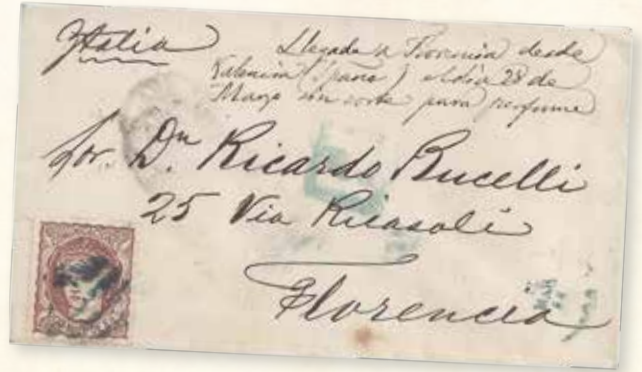 Italia
Llegada a Florencia desde
Valencia (España) el dia 28 de
Marzo sin corte para perfume
Sor. Dn Ricardo Rucelli
25 Via Ricasoli
Florencia